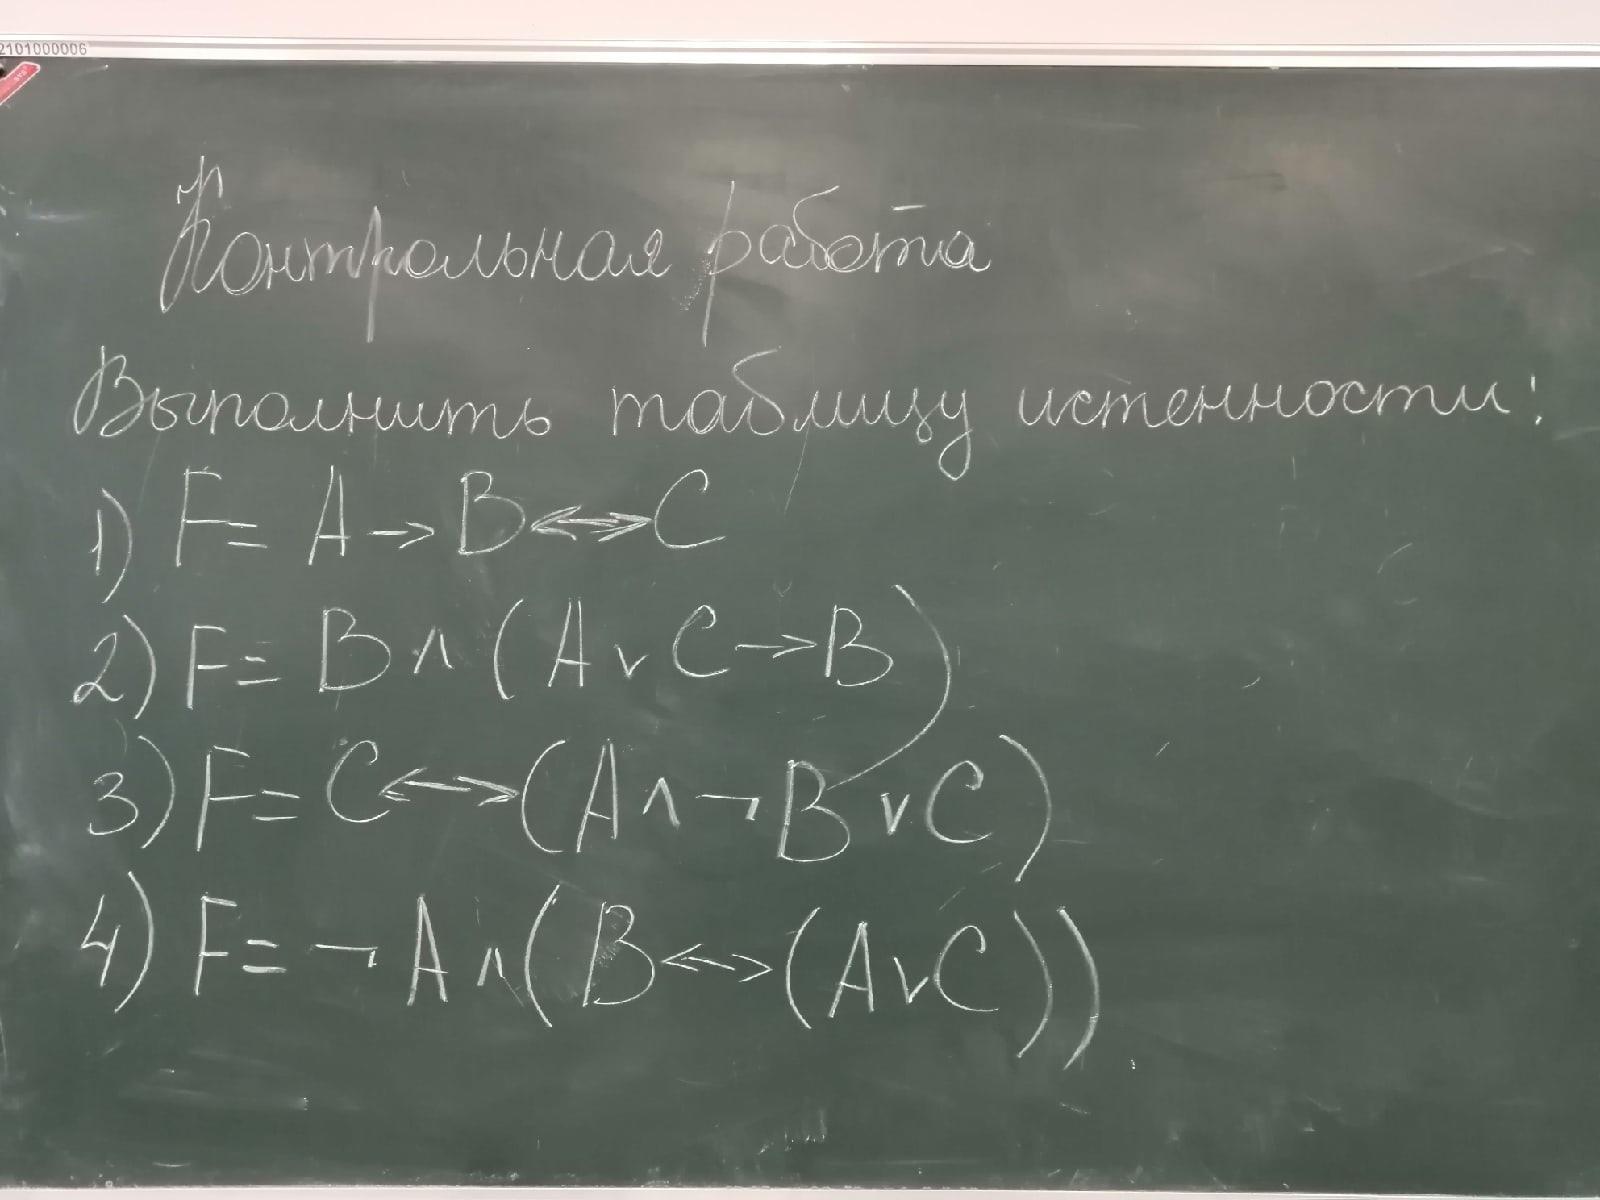 2101000006
Контрольная работа
Выполнить таблицу истенности:
1) F = A → B ↔ C
2) F = B ∧ (A ∨ C → B)
3) F = C ↔ (A ∧ ¬ B ∨ C)
4) F = ¬ A ∧ (B ↔ (A ∨ C))